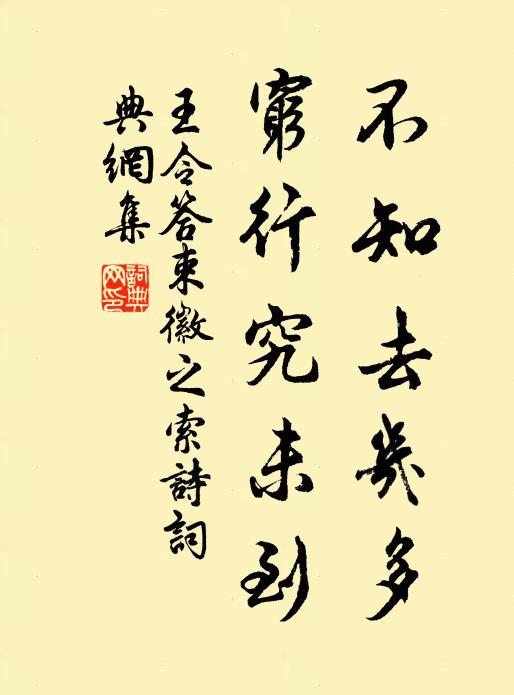 不知去幾多
窮行究未到
王令答束徽之索詩詞
典網集
詞典網印